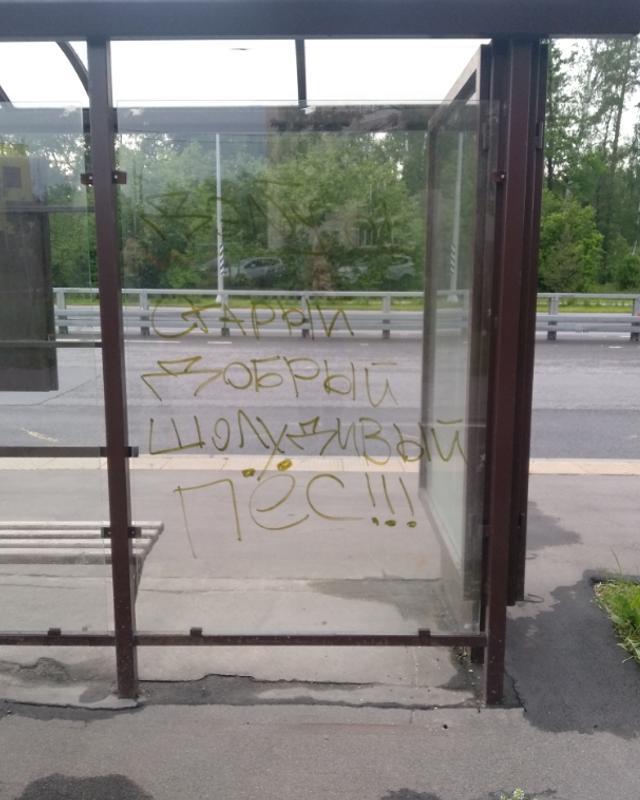 СТАРЫЙ
ДОБРЫЙ
ШОЛУДИВЫЙ
ПЁС!!!